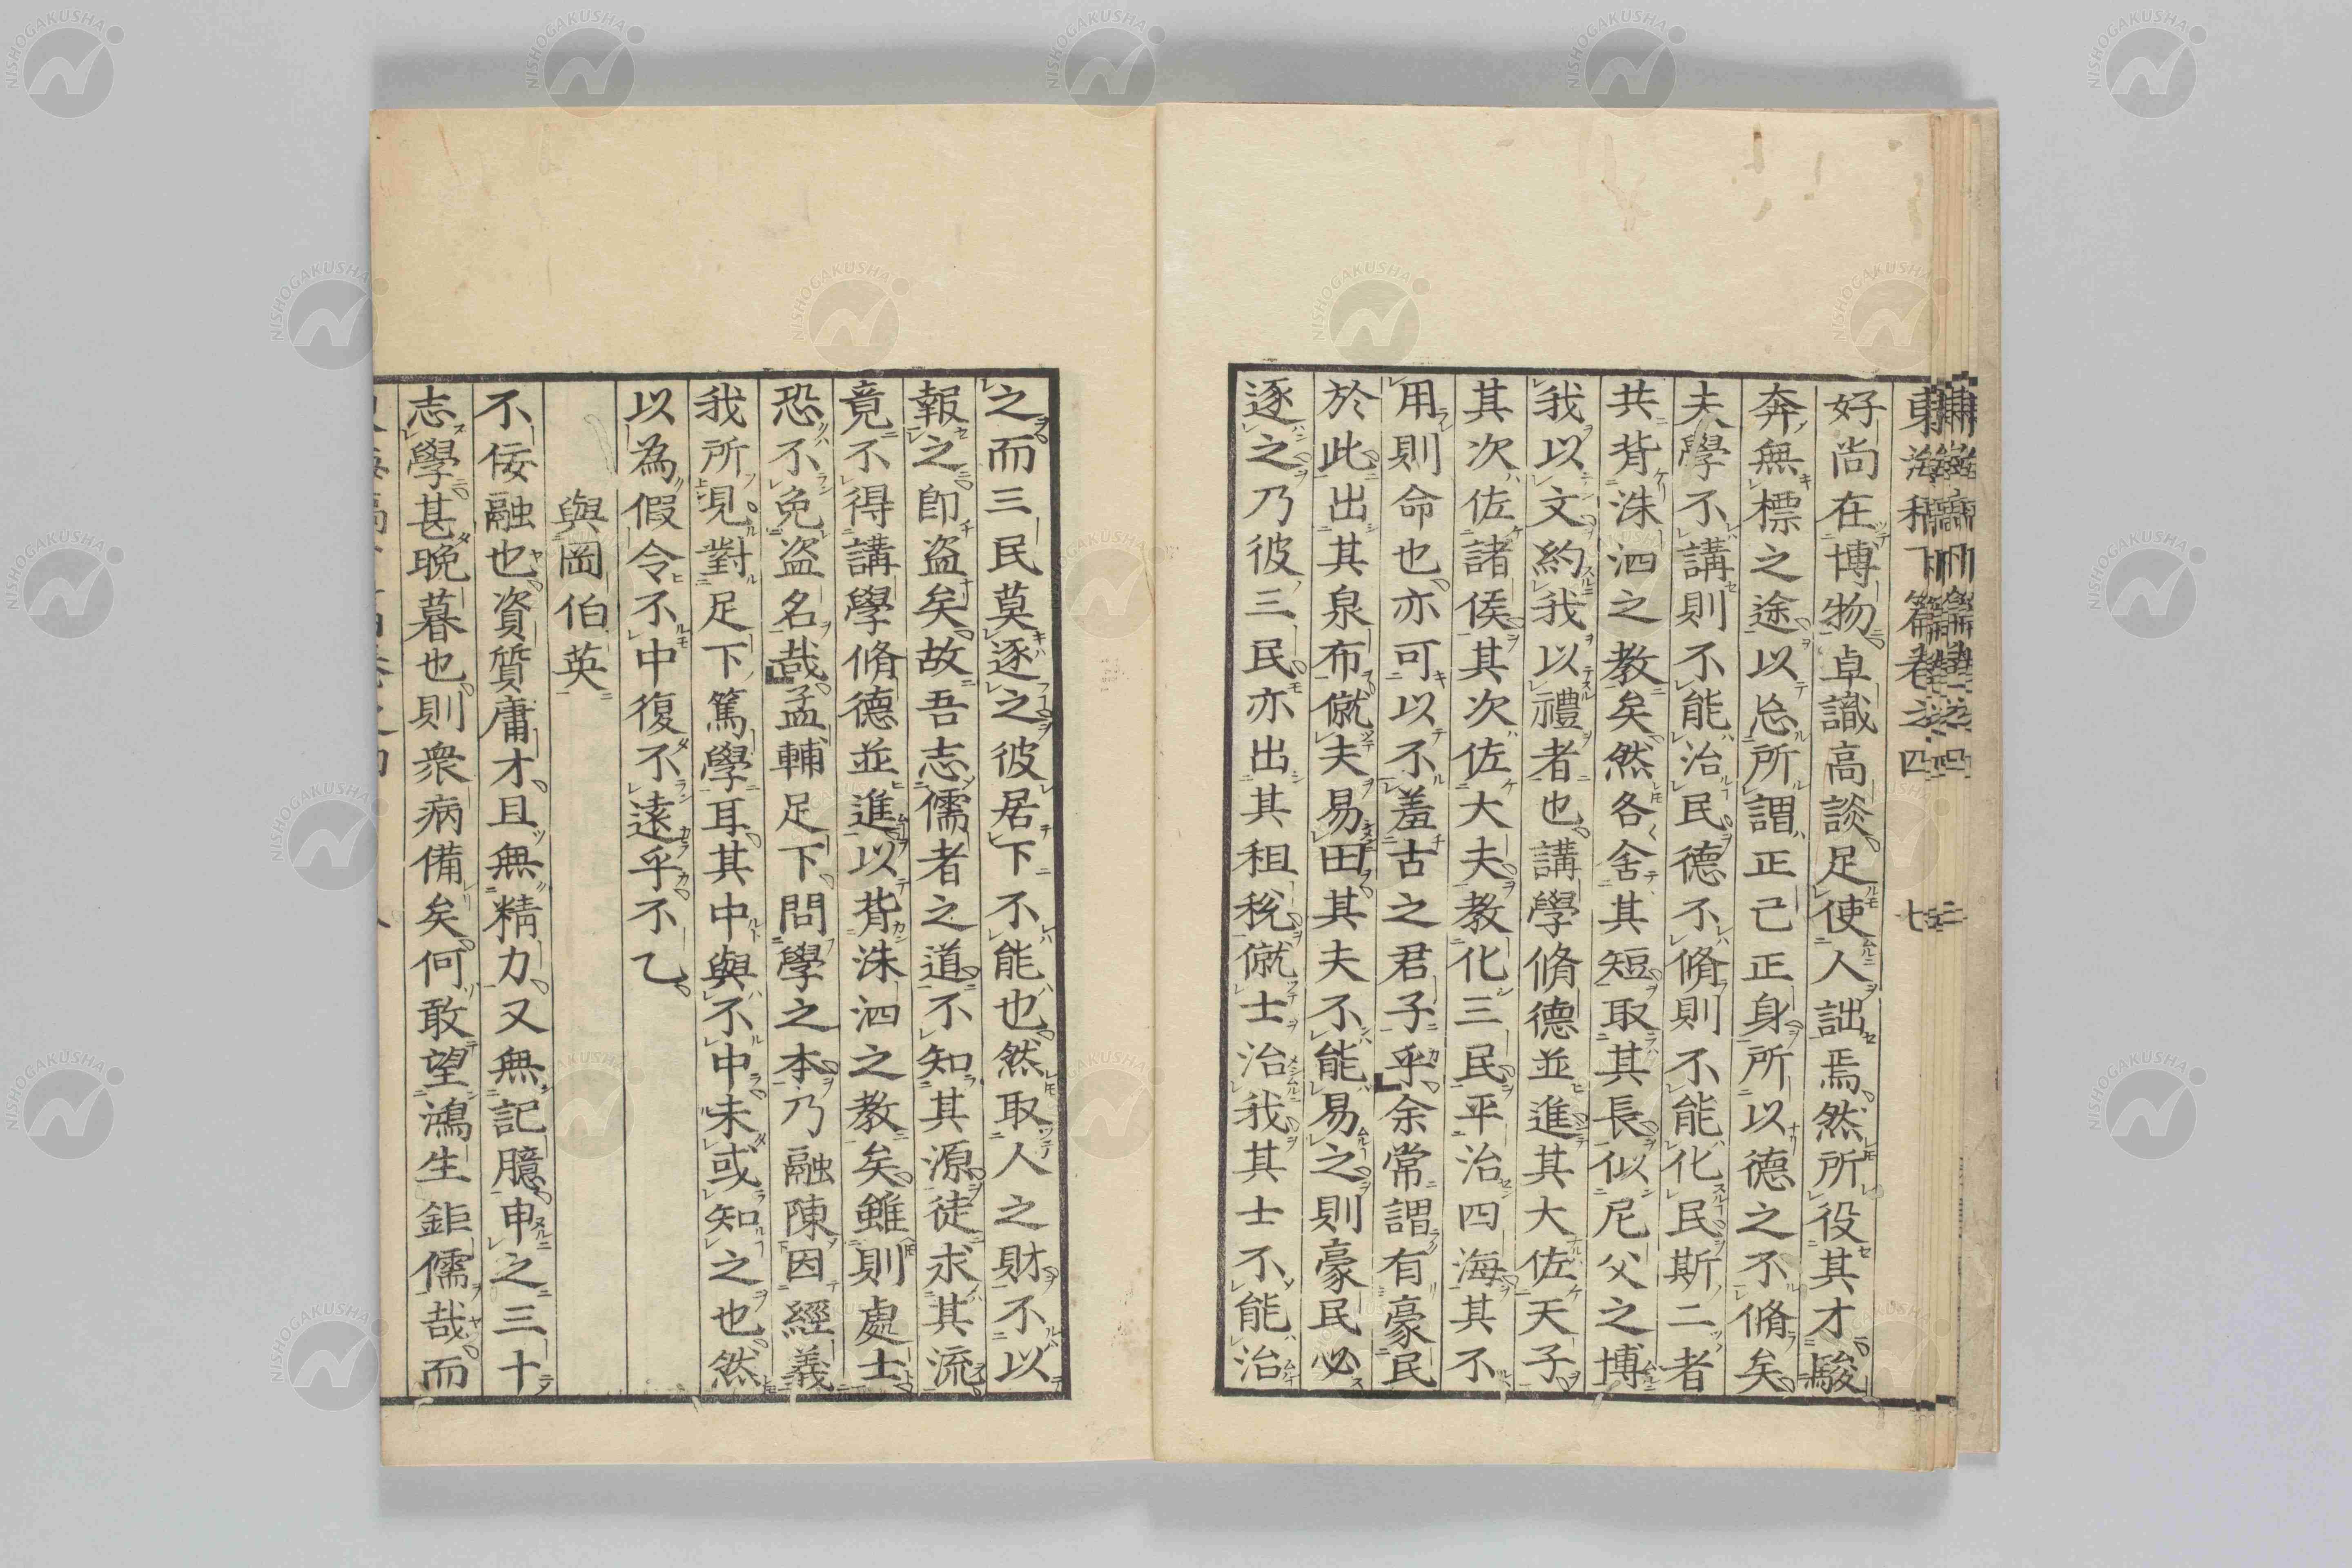 好尚在博物卓識高談足使人詘焉然所役其才駿
奔無標之途以忘所謂正己正身所以德之不脩矣
夫學不講則不能治民德不脩則不能化民斯二者
共背洙泗之教矣然各舍其短取其長似尼父之博
我以文約我以禮者也講學脩德並進其大佐天子
其次佐諸侯其次佐大夫教化三民平治四海其不
用則命也亦可以不羞古之君子乎余常謂有豪民
於此出其泉布僦夫易田其夫不能易之則豪民必
逐之乃彼三民亦出其租稅僦士治我其士不能治
之而三民莫逐之彼居下不能也然取人之財不以
報之卽盜矣故吾志儒者之道不知其源徒求其流
竟不得講學脩德並進以背洙泗之教矣雖則處士
恐不免盜名哉孟輔足下問學之本乃融陳因經義
我所見對足下篤學耳其中與不中未或知之也然
以為假令不中復不遠乎不乙
與岡伯英
不佞融也資質庸才且無精力又無記臆申之三十
志學甚晚暮也則衆病備矣何敢望鴻生鉅儒哉而
NISHOGAKUSHA